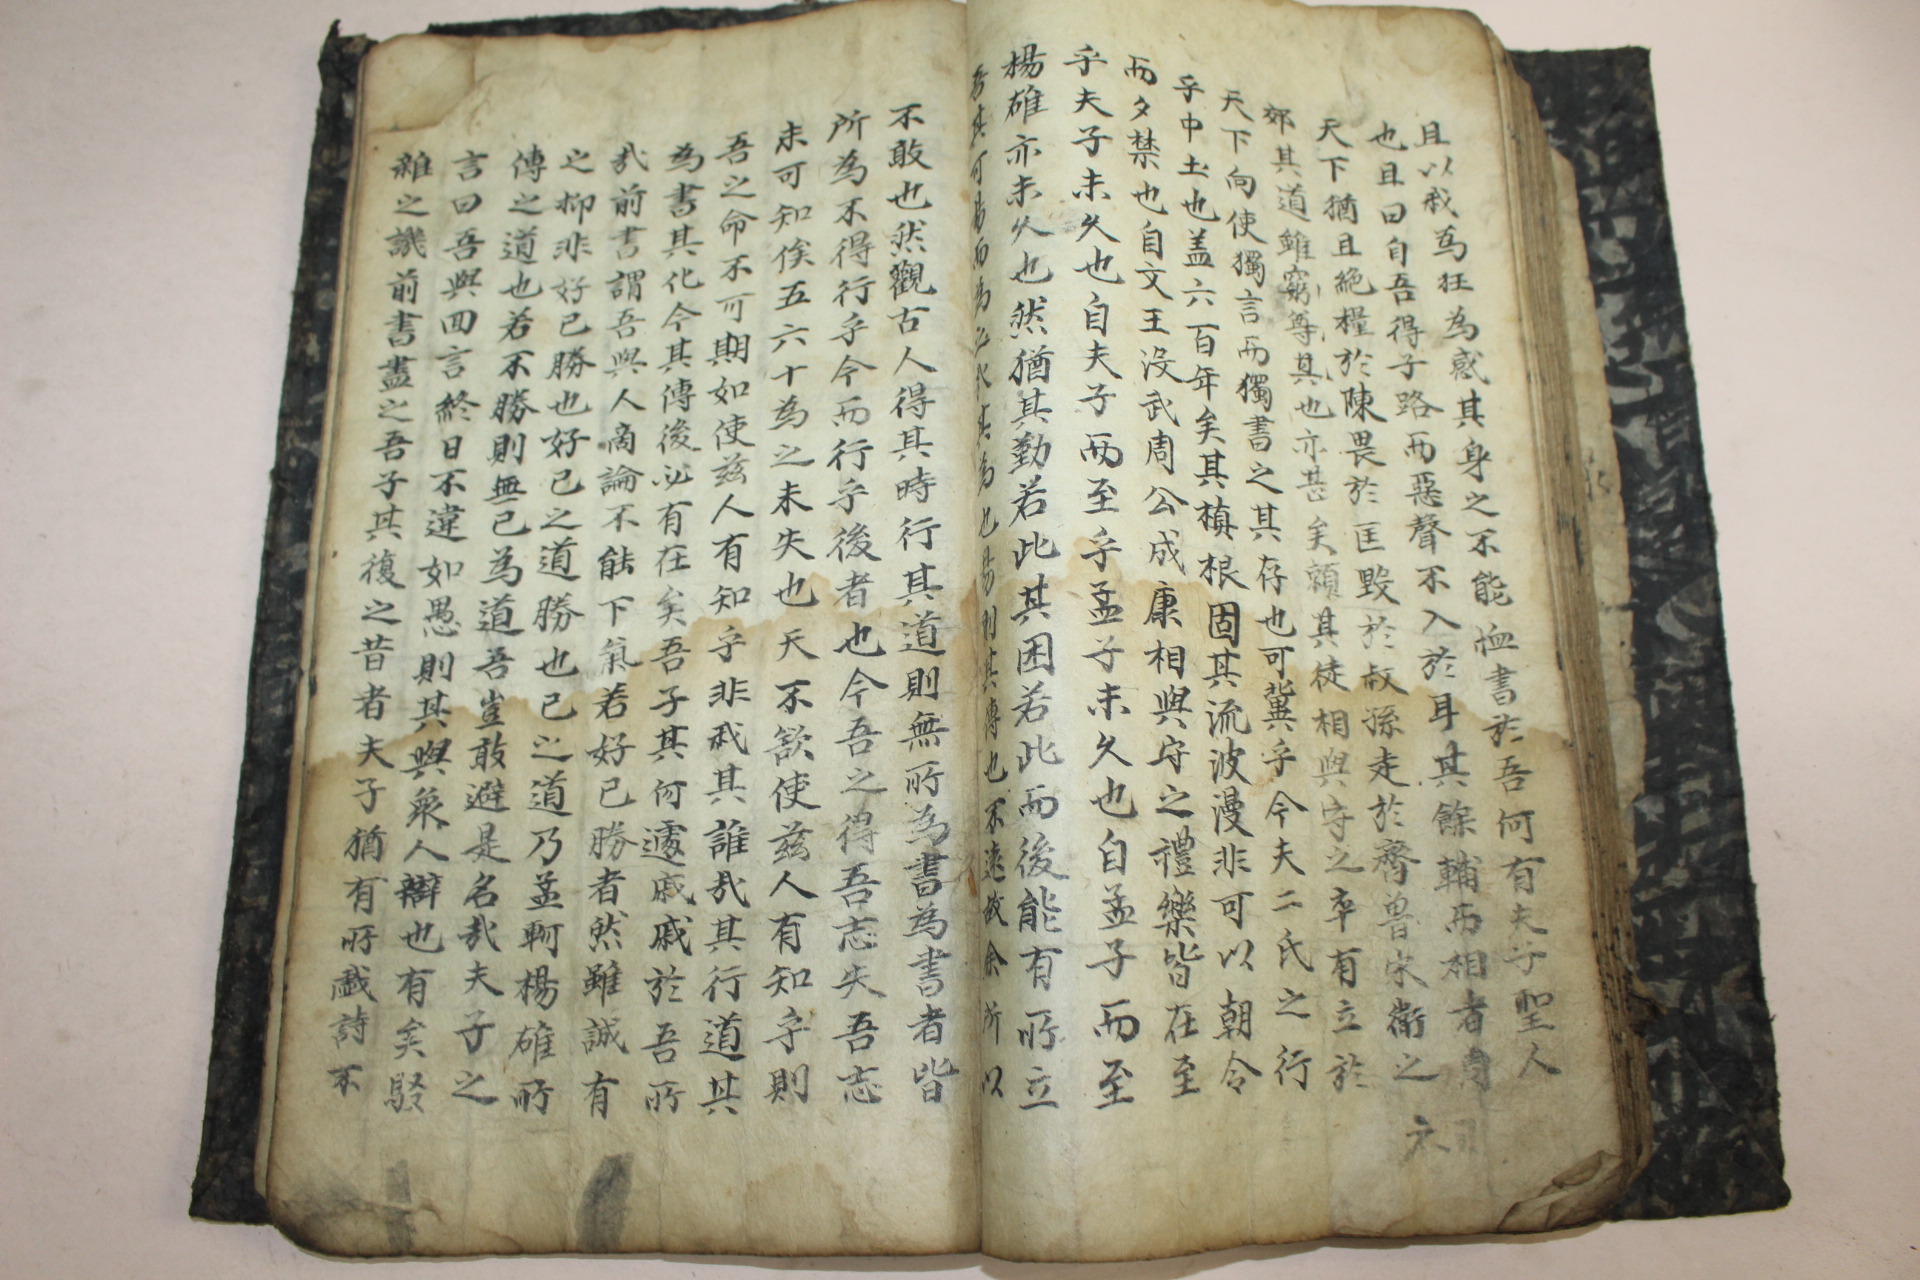 且以我為狂為惑其身之不能恤書於吾何有夫子聖人
也且曰自吾得子路而惡聲不入於耳其餘輔而相者周
天下猶且絶糧於陳畏於匡毀於叔孫走於齊魯宋衛之
郊其道雖窮尊其也亦甚矣頼其徒相與守之卒有立於
天下向使獨言而獨書之其存也可冀乎今夫二氏之行
乎中土也盖六百年矣其植根固其流波漫非可以朝令
而夕禁也自文王没武周公成康相與守之禮樂皆在至
乎夫子未久也自夫子而至乎孟子未久也自孟子而至
楊雄亦未久也然猶其勤若此其困若此而後能有所立
吾其可易而為之哉其為也易則其傳也不遠故余所以
不敢也然觀古人得其時行其道則無所為書為書者皆
所為不得行乎今而行乎後者也今吾之得吾志失吾志
未可知俟五六十為之未失也天不欲使茲人有知乎則
吾之命不可期如使茲人有知乎非我其誰哉其行道其
為書其化今其傳後必有在矣吾子其何遽戚戚於吾所
哉前書謂吾與人商論不能下氣若好已勝者然雖誠有
之抑非好已勝也好已之道勝也已之道乃孟軻楊雄所
傳之道也若不勝則無已為道吾豈敢避是名哉夫子之
言曰吾與回言終日不違如愚則其與衆人辯也有矣駁
雜之譏前書盡之吾子其復之昔者夫子猶有所戱詩不